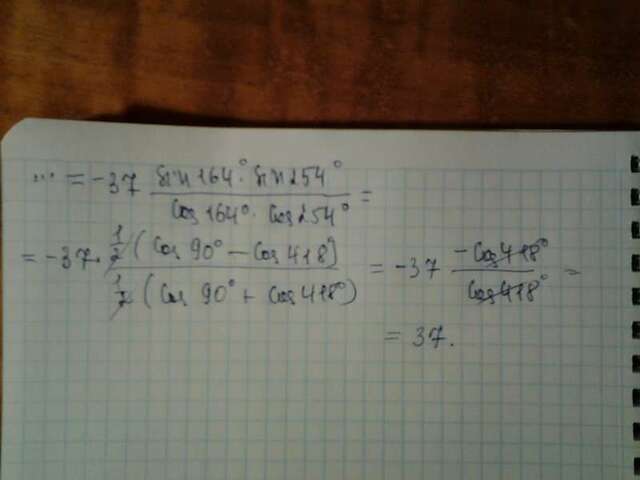 ... = -37 sin 164° · sin 254° / cos 164° · cos 254° =
= -37 · 1/2 (cos 90° - cos 418°) / 1/2 (cos 90° + cos 418°) = -37 -cos 418° / cos 418° =
= 37.